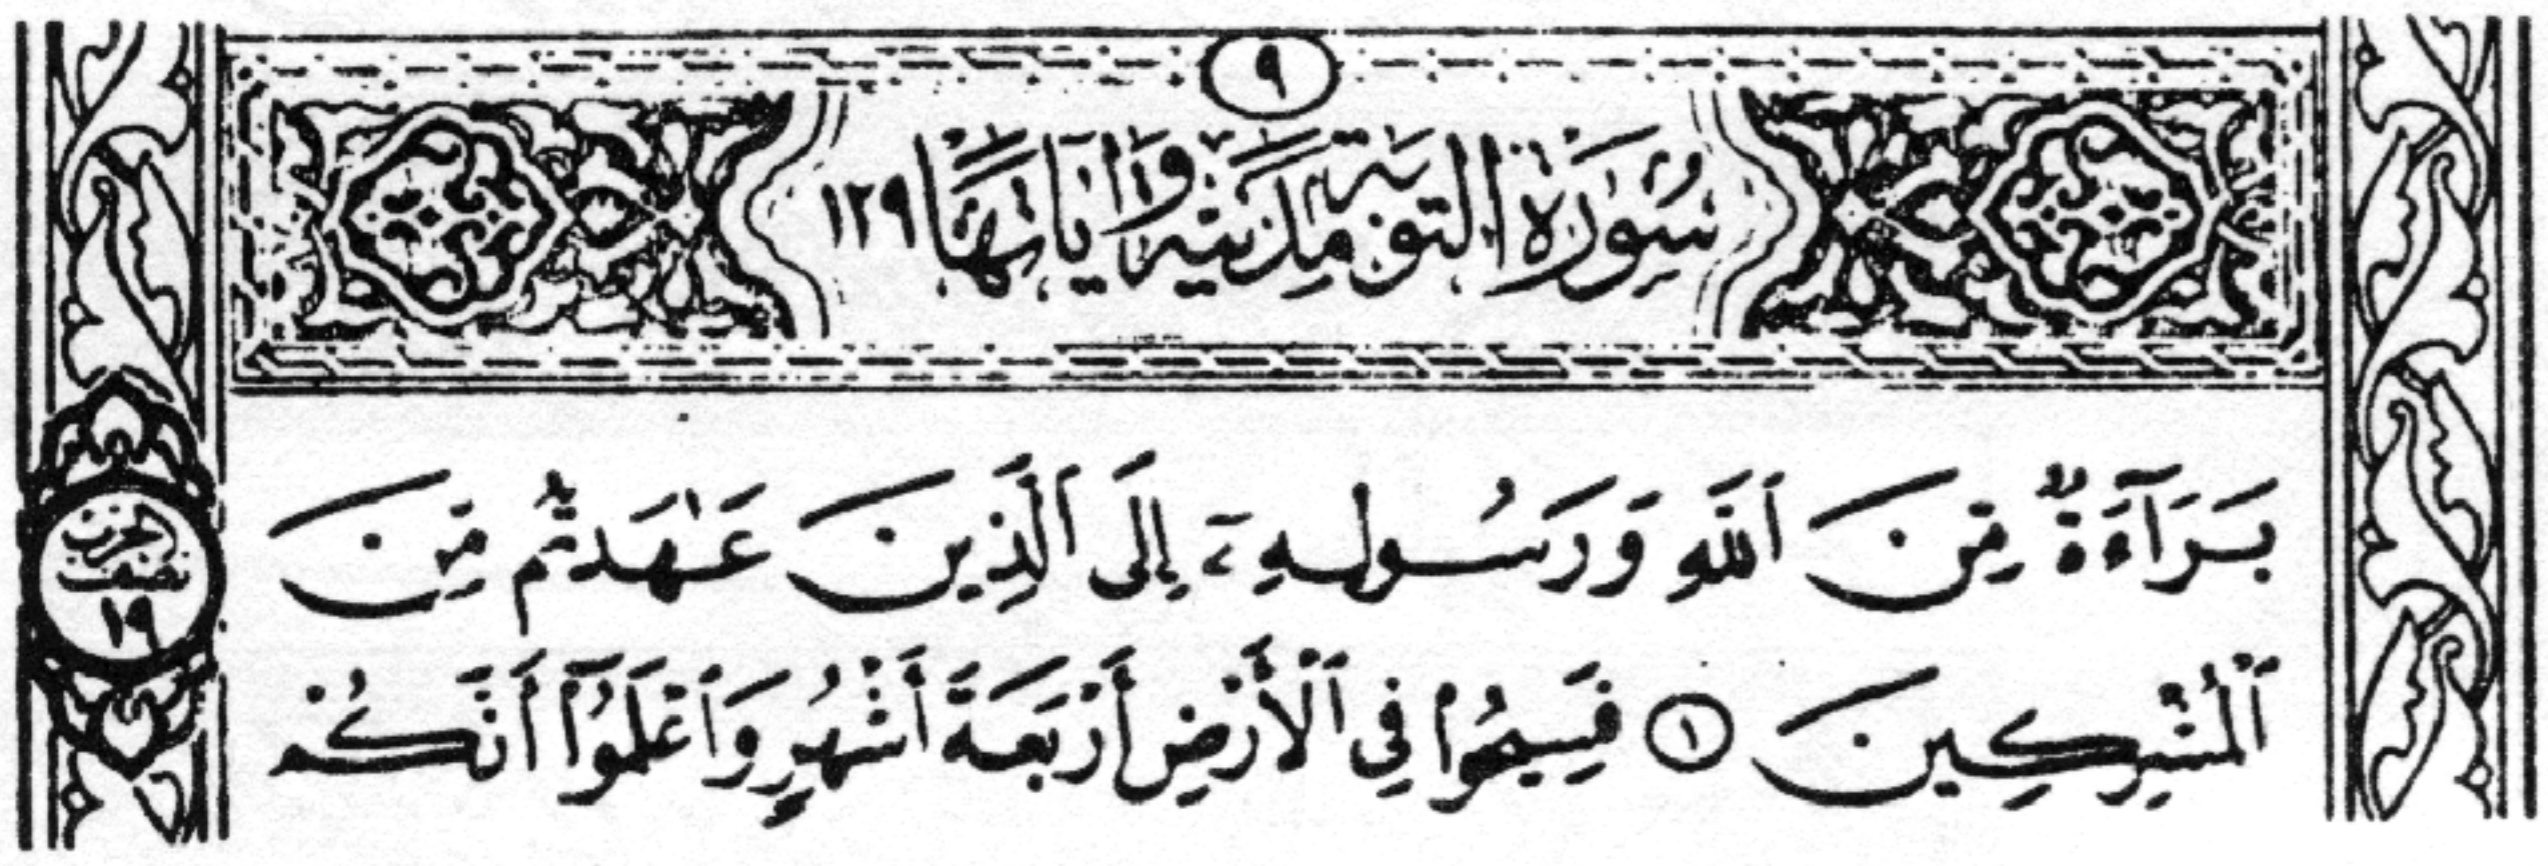 ٩
سُورَةُ التَّوْبَةِ مَدَنِيَّةٌ وَآيَاتُهَا ١٢٩
بَرَآءَةٌ مِّنَ ٱللَّهِ وَرَسُولِهِۦٓ إِلَى ٱلَّذِينَ عَـٰهَدتُّم مِّنَ
ٱلْمُشْرِكِينَ ١ فَسِيحُوا۟ فِى ٱلْأَرْضِ أَرْبَعَةَ أَشْهُرٍ وَٱعْلَمُوٓا۟ أَنَّكُمْ
نصف
الحزب
١٩